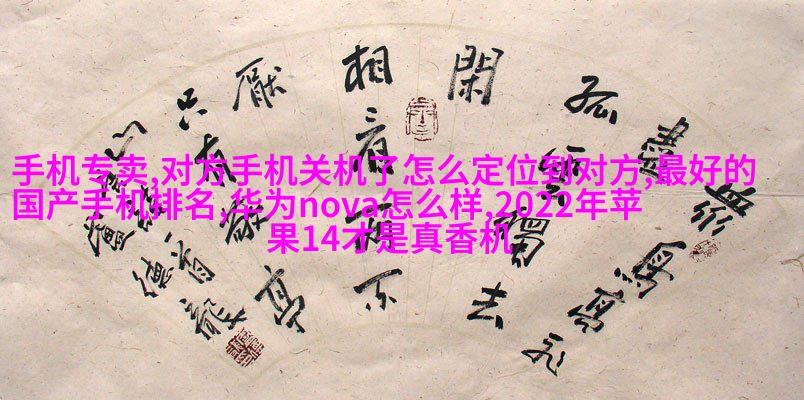 手机专卖,对方手机关机了怎么定位到对方,最好的
国产手机排名,华为nova怎么样,2022年苹
果14才是真香机
眾鳥高飛
盡
孤雲獨去
閑
相看兩不
厭
只有敬亭
山